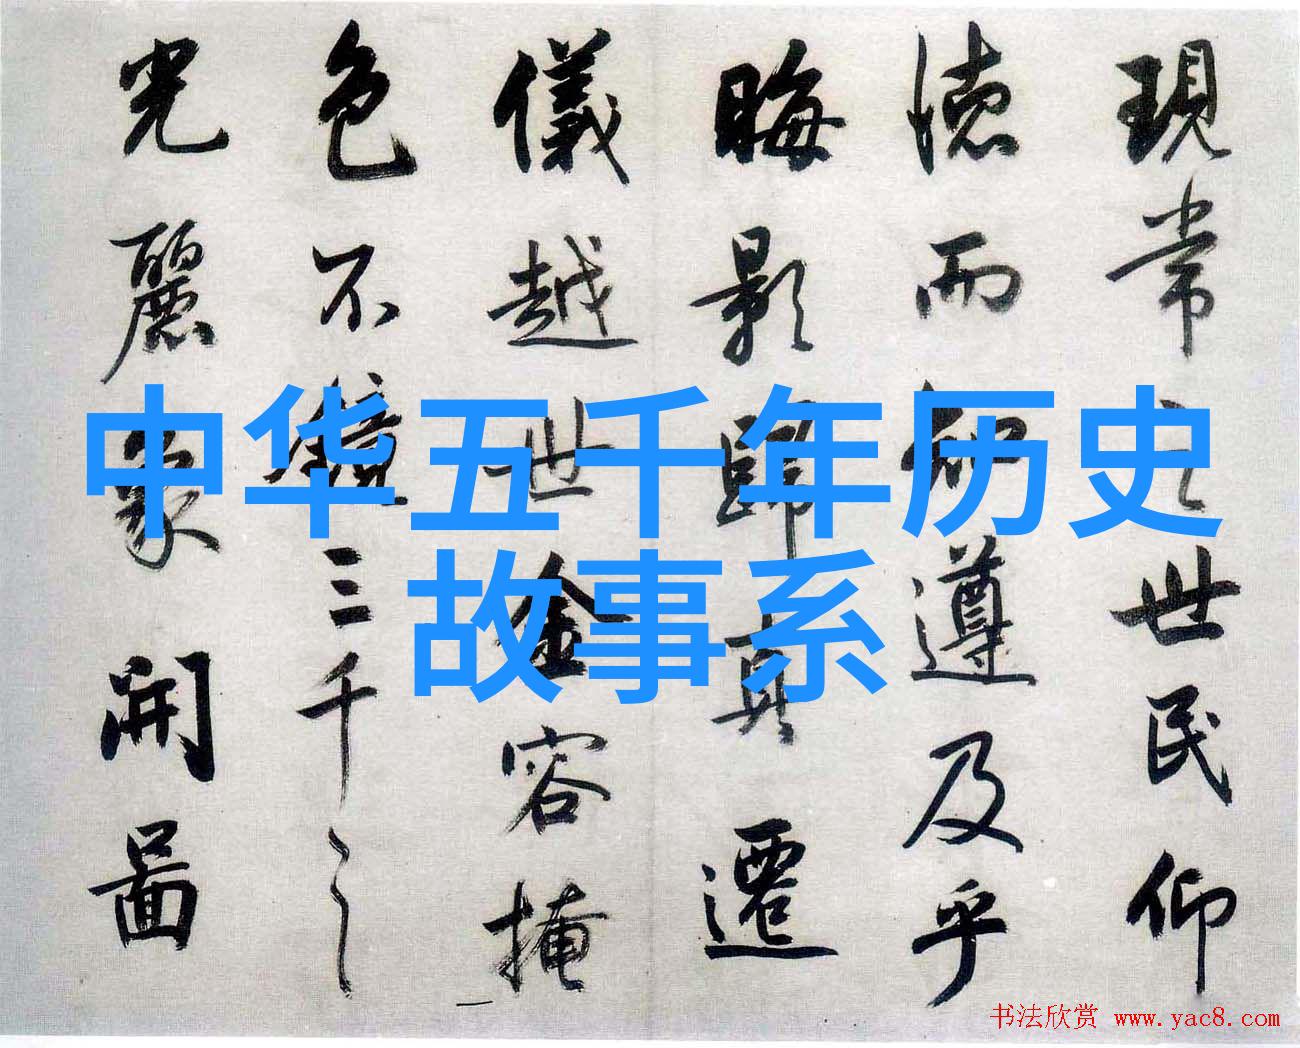 中华五千年历史
故事系
現常之世民仰
德而知遵及乎
晦影歸真遷
儀越世金容掩
色不鏡三千之
光麗象開圖
书法欣赏 www.yac8.com